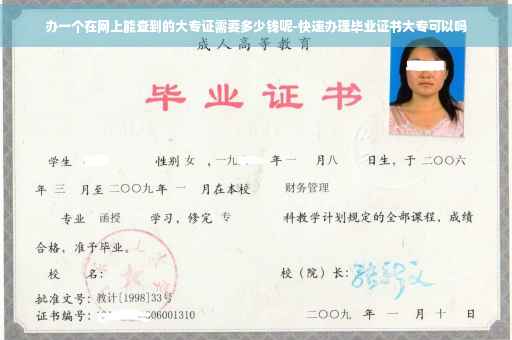 办一个在网上能查到的大专证需要多少钱呢-快速办理毕业证书大专可以吗
成人高等教育
毕业证书
学生 性别 女 , 一九 年 一 月八 日生, 于 二〇〇六
年 三 月至 二〇〇九 年 一 月在本校 财务管理
专业 函授 学习, 修完 专 科教学计划规定的全部课程, 成绩
合格, 准予毕业。
校 名: 校(院)长:
批准文号: 教计[1998]33号
证书编号: 06001310 二〇〇九 年 一 月 十 日